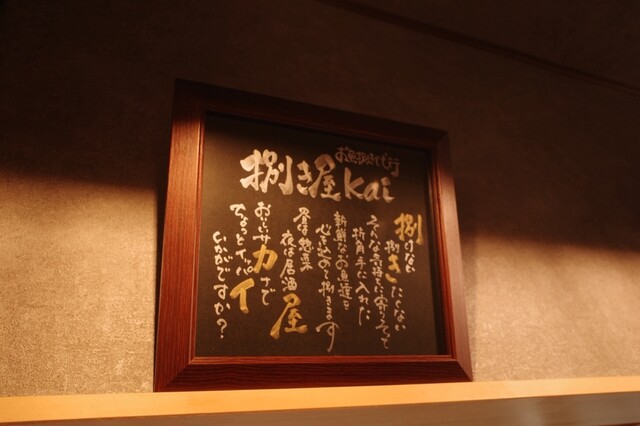 お魚捌き代行
捌き屋 Kai
捌けない
捌きたくない
そんな気持ちに寄りそって
折角手に入れた
新鮮なお魚達を
心を込めて捌きます
昼は惣菜
夜は居酒屋
おいしいサカナで
ちょっとイッパイ
いかがですか?